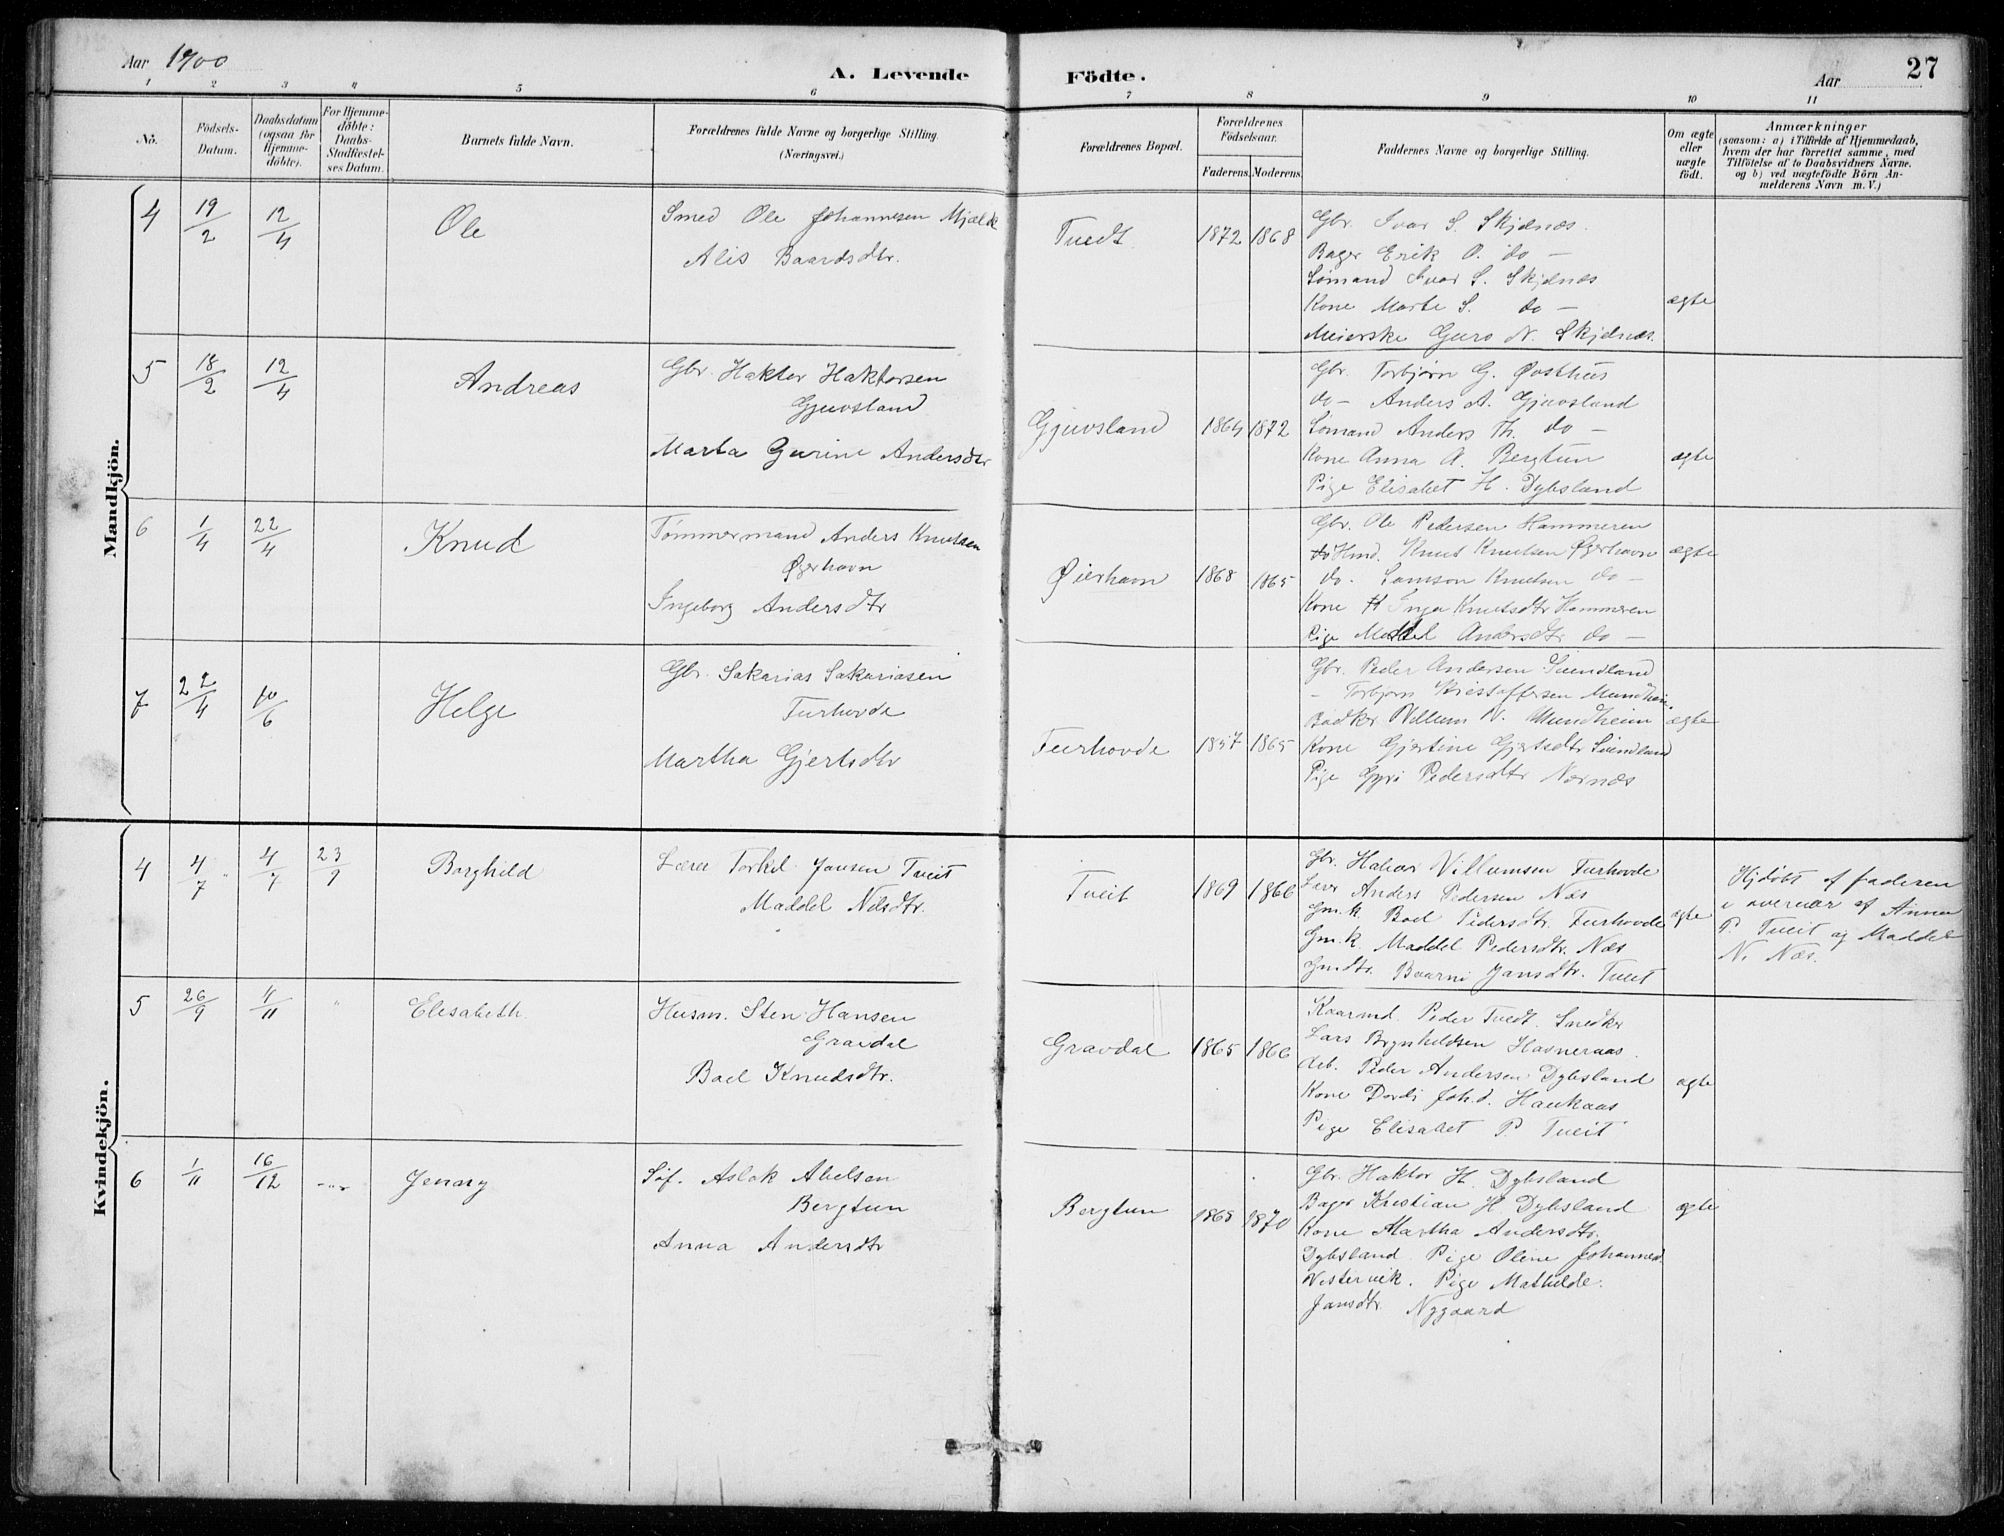 Aar 1900
A. Levende Födte.
Aar
27
1 2 3 4 5 6 7 8 9 10 11
No.
Födsels-Datum.
Daabsdatum (ogsaa for Hjemme-döbte).
For Hjemme-döbte: Daabs-Stadfæstel-ses Datum.
Barnets fulde Navn.
Forældrenes fulde Navne og borgerlige Stilling.
(Næringsvei.)
Forældrenes Bopæl.
Forældrenes Födselsaar.
Faderens. Moderens.
Faddernes Navne og borgerlige Stilling.
Om ægte eller uægte födt.
Anmærkninger
(saasom: a) i Tilfælde af Hjemmedaab,
hvem der har forrettet samme, med
Tilföielse af to Daabsvidners Navne.
og b) ved uægtefödte Börn An-
melderens Navn m. V.)
Mandkjön.
4 19/2 12/4 Ole
Smed Ole Johannesen Mjelde
Alis Baardsdtr.
Tvedt 1872 1868
Gbr. Ivar S. Skjelnæs.
Bager Erik O. do -
Sømand Ivar S. Skjelnæs
Kone Marte S. do -
Meierske Guro N. Skjelnæs.
ægte
5 18/2 12/4 Andreas
Gbr. Haktor Haktorsen
Gjuvsland
Marta Gurine Andersdtr
Gjuvsland 1864 1872
Gbr. Torbjørn G. Østhus
do - Anders A. Gjuvsland
Sømand Anders Th. do -
Kone Anna A. Bergtun
Pige Elisabet H. Dybsland
ægte
6 1/4 22/4 Knud
Tømmermand Anders Knutsen
Øyerhavn
Ingeborg Andersdtr
Øierhavn 1868 1865
Gbr. Ole Pedersen Hammeren
Hmd. Knut Knutsen Øyerhavn
do. Samson Knutsen do -
Kone Inga Knutsdtr Hammeren
Pige Maddel Andersdtr do -
ægte
7 22/4 10/6 Helge
Gbr. Sakarias Sakariasen
Furhovde
Martha Gjertsdtr
Furhovde 1857 1865
Gbr. Peder Andersen Sundland
- Torbjørn Kristoffersen Mundheim.
Bødker Villum N. Mundheim
Kone Gjertine Gjertsdtr Sundland
Pige Gyri Pedersdtr Nernæs
ægte
Kvindekjön.
4 4/7 4/7 23/9 Borghild
Lærer Torkel Jansen Tveit
Maddel Nilsdtr.
Tveit 1869 1866
Gbr. Halvor Villumsen Furhovde
Lærer Anders Pedersen Næs
Gm.k. Boel Pedersdtr. Furhovde
Gm.k. Maddel Pedersdtr. Næs
Gmdtr. Jansdtr. Tveit
ægte
Hjdøbt af faderen
i overvær af Anna
P. Tveit og Maddel
N. Næs.
5 26/9 4/11 " Elisabeth.
Husm. Sten Hansen
Gravdal
Boel Knudsdtr.
Gravdal 1865 1866
Kaarmd. Peder Tvedt. Snedker
Lars Brynhildsen Havneraas.
Arb. Peder Andersen Dybsland
Kone Dordi Joh.d. Haukaas
Pige Elisabet P. Tveit
ægte
6 1/11 16/12 -"- Jenny
Søf. Aslak Abelsen
Bergtun
Anna Andersdtr
Bergtun 1868 1870
Gbr. Haktor H. Dybsland
Bager Kristian H. Dybsland
Kone Martha Andersdtr.
Dybsland. Pige Oline Johannesd.
Vestervik. Pige Mathilde
Jansdtr. Nygaard
ægte